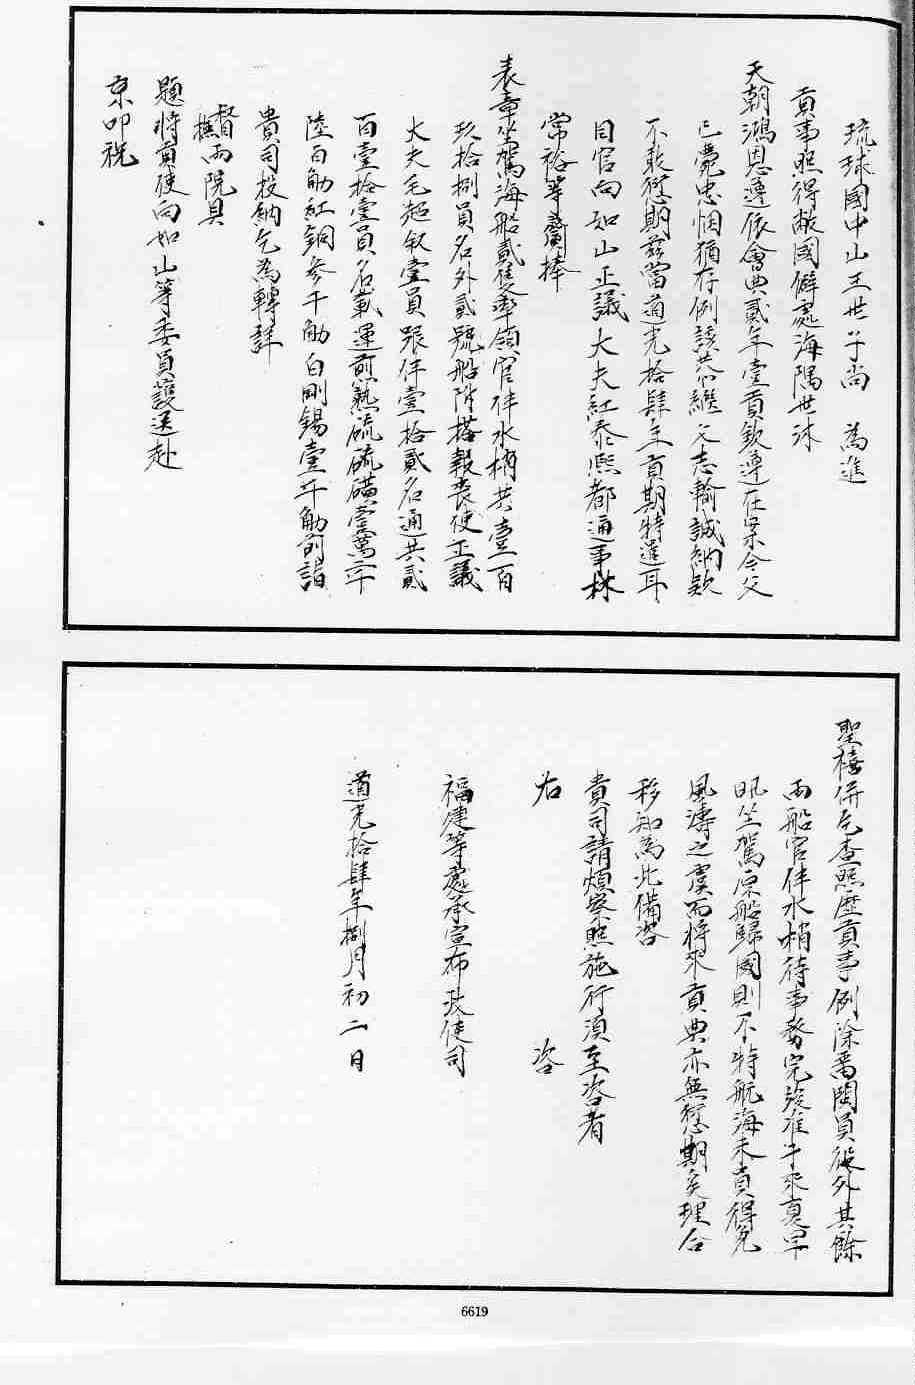 琉球國中山王世子尚　為進
貢事照得敝國僻處海隅世沐
天朝鴻恩遵依會典貳年壹貢欽遵在案今父
已薨忠悃猶存例該恭繼父志輸誠納款
不敢愆期茲當道光拾肆年貢期特遣耳
目官向如山正議大夫紅泰熙都通事林
常裕等齎捧
表章坐駕海船貳隻率領官伴水梢共壹百
玖拾捌員名外貳號船附搭報喪使正議
大夫毛超叙壹員跟伴壹拾貳名通共貳
百壹拾壹員名載運煎熟硫磺壹萬貳千
陸百觔紅銅參千觔白剛錫壹千觔前詣
貴司投納乞為轉詳
督撫兩院具
題將貢使向如山等委員護送赴
京叩祝
聖禧併乞查照歷貢事例除留閩員役外其餘
兩船官伴水梢待事務完竣准于來夏早
汛坐駕原船歸國則不特航海末貢得免
風濤之虞而將來貢典亦無愆期矣理合
移知為此備咨
貴司請煩察照施行須至咨者
右　咨
福建等處承宣布政使司
道光拾肆年捌月初二日
6619